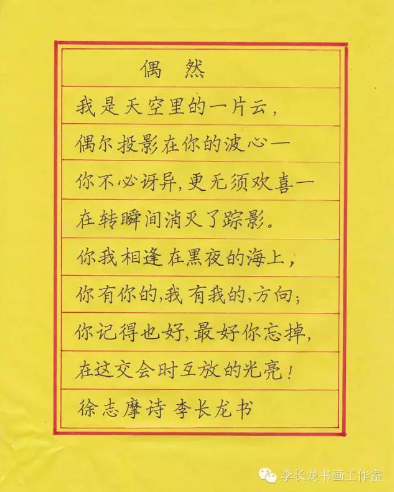 偶然
我是天空里的一片云，
偶尔投影在你的波心一
你不必讶异，更无须欢喜一
在转瞬间消灭了踪影。
你我相逢在黑夜的海上，
你有你的，我有我的，方向；
你记得也好，最好你忘掉，
在这交会时互放的光亮！
徐志摩诗 李长龙书
李长龙书画工作室